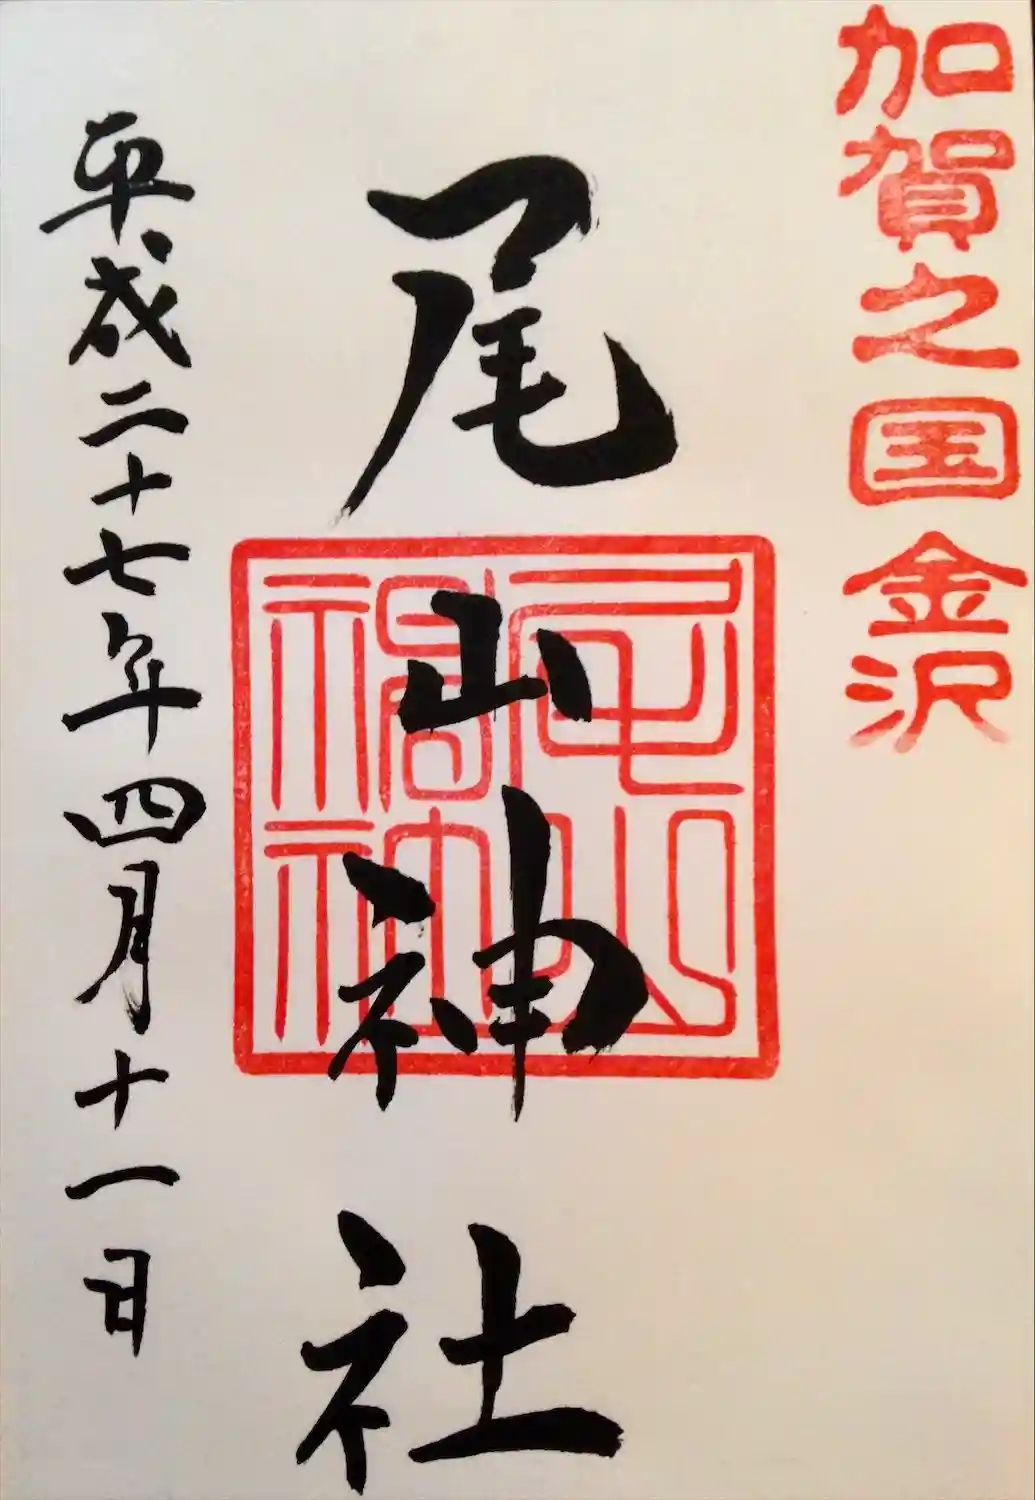 加賀之国金沢
尾山神社
平成二十七年四月十一日